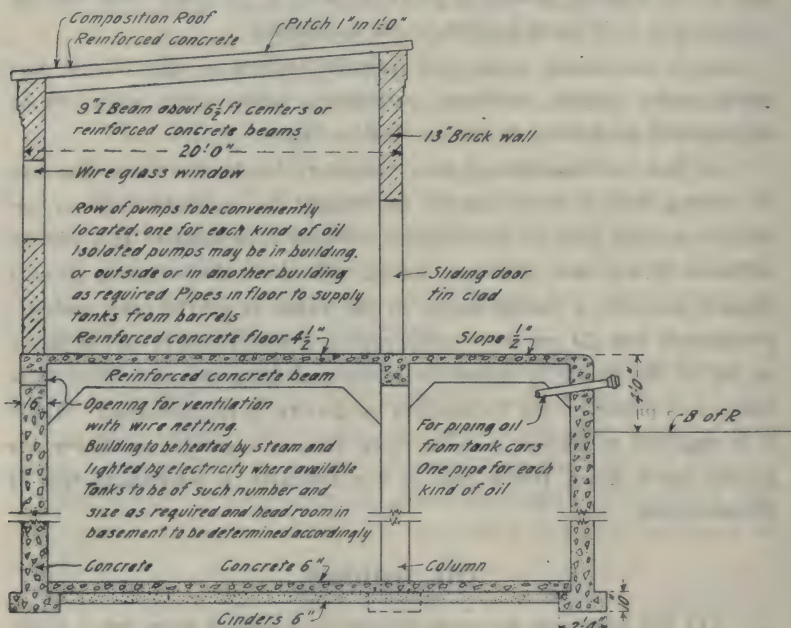 Composition Roof
Reinforced concrete
Pitch 1" in 1'-0"
9" I Beam about 6 1/2 ft centers or
reinforced concrete beams
20'-0"
13" Brick wall
Wire glass window
Row of pumps to be conveniently
located, one for each kind of oil
Isolated pumps may be in building.
or outside or in another building
as required Pipes in floor to supply
tanks from barrels
Sliding door
tin clad
Reinforced concrete floor 4 1/2"
Slope 1/2"
Reinforced concrete beam
4'-0"
16"
Opening for ventilation
with wire netting.
Building to be heated by steam and
lighted by electricity where available
Tanks to be of such number and
size as required and head room in
basement to be determined accordingly
For piping oil
from tank cars
One pipe for each
kind of oil
B of R
Concrete
Concrete 6"
Column
Cinders 6"
10"
2'-0"